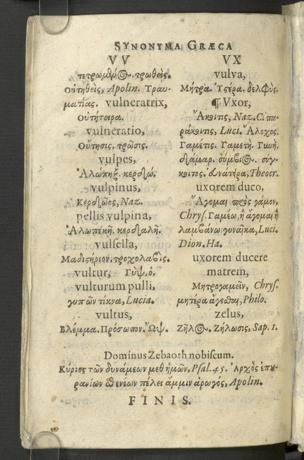 SYNONYMA GRÆCA
VV
τετρωμένος. τρωθείς.
Οὐτηθεὶς, Apolin. Τραυ-
ματίας. vulneratrix,
Οὐτήτειρα.
vulneratio,
Οὔτησις. τρῶσις.
vulpes,
Ἀλώπηξ. κερδώ.
vulpinus,
Κερδῷος, Naz.
pellis vulpina,
Ἀλωπεκῆ. κερδαλῆ.
vulsella,
Μαδιστήριον. τριχολαβίς.
vultur, Γύψ, ὁ.
vulturum pulli,
γυπῶν τέκνα, Lucia.
vultus,
Βλέμμα. Πρόσωπον. Ὤψ.
VX
vulva,
Μήτρα. Ὑστέρα. δελφύς.
¶ Vxor,
Ἄκοιτις, Naz. C. πα-
ράκοιτις, Luci. Ἄλοχος.
Γαμέτις. Γαμετή. Γυνή.
δάμαρ. σύμβιος. σύγ-
κοιτος. Theocr.
uxorem duco,
Ἄγομαι πρὸς γάμον,
Chrys. Γαμέω, ἢ ἄγομαι ἢ
λαμβάνω γυναῖκα, Luci.
Dion. Ha.
uxorem ducere
matrem,
Μητρογαμεῖν, Chrys.
μητέρα ἄγεσθαι, Philo.
zelus,
Ζῆλος. Ζήλωσις, Sap. 1.
Dominus Zebaoth nobiscum.
Κύριος τῶν δυνάμεων μεθ' ἡμῶν, Psal. 45. Ἀρχὸς ἐπου-
ρανίων πέλει ἄμμιν ἀρωγός, Apolin.
FINIS.